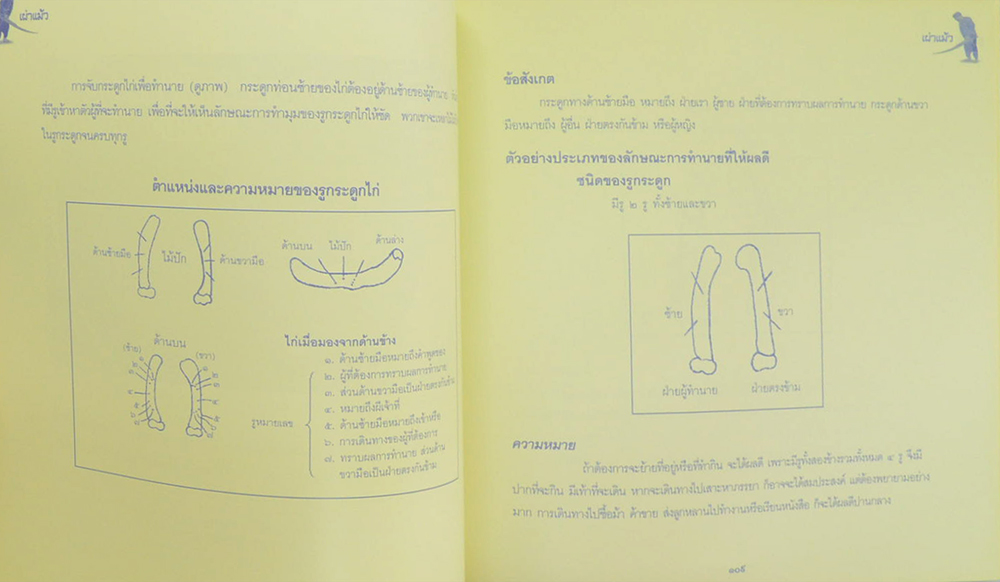 เผ่าแม้ว
การจับกระดูกไก่เพื่อทำนาย (ดูภาพ) กระดูกท่อนซ้ายของไก่ต้องอยู่ด้านซ้ายของผู้ทำนาย
ที่มีรูเข้าหาตัวผู้ที่จะทำนาย เพื่อที่จะให้เห็นลักษณะการทำมุมของรูกระดูกไก่ให้ชัด พวกเขาจะ
ในรูกระดูกจนครบทุกรู
ตำแหน่งและความหมายของรูกระดูกไก่
ด้านซ้ายมือ ไม้ปัก ด้านขวามือ
ด้านบน ไม้ปัก ด้านล่าง
ด้านบน
(ซ้าย) (ขวา)
ไก่เมื่อมองจากด้านข้าง
รูหมายเลข
๑. ด้านซ้ายมือหมายถึงคำพูดของ
๒. ผู้ที่ต้องการทราบผลการทำนาย
๓. ส่วนด้านขวามือเป็นฝ่ายตรงกันข้าม
๔. หมายถึงผีเจ้าที่
๕. ด้านซ้ายมือหมายถึงเข้าหรือ
๖. การเดินทางของผู้ที่ต้องการ
๗. ทราบผลการทำนาย ส่วนด้าน
ขวามือเป็นฝ่ายตรงกันข้าม
เผ่าแม้ว
ข้อสังเกต
กระดูกทางด้านซ้ายมือ หมายถึง ฝ่ายเรา ผู้ชาย ฝ่ายที่ต้องการทราบผลการทำนาย กระดูกด้านขวา
มือหมายถึง ผู้อื่น ฝ่ายตรงกันข้าม หรือผู้หญิง
ตัวอย่างประเภทของลักษณะการทำนายที่ให้ผลดี
ชนิดของรูกระดูก
มีรู ๒ รู ทั้งซ้ายและขวา
ซ้าย ขวา
ฝ่ายผู้ทำนาย ฝ่ายตรงข้าม
ความหมาย
ถ้าต้องการจะย้ายที่อยู่หรือที่ทำกิน จะได้ผลดี เพราะมีรูทั้งสองข้างรวมทั้งหมด ๔ รู จึงมี
ปากที่จะกิน มีเท้าที่จะเดิน หากจะเดินทางไปเสาะหาภรรยา ก็อาจจะได้สมประสงค์ แต่ต้องพยายามอย่าง
มาก การเดินทางไปซื้อม้า ค้าขาย ส่งลูกหลานไปทำงานหรือเรียนหนังสือ ก็จะได้ผลดีปานกลาง
๑๐๙